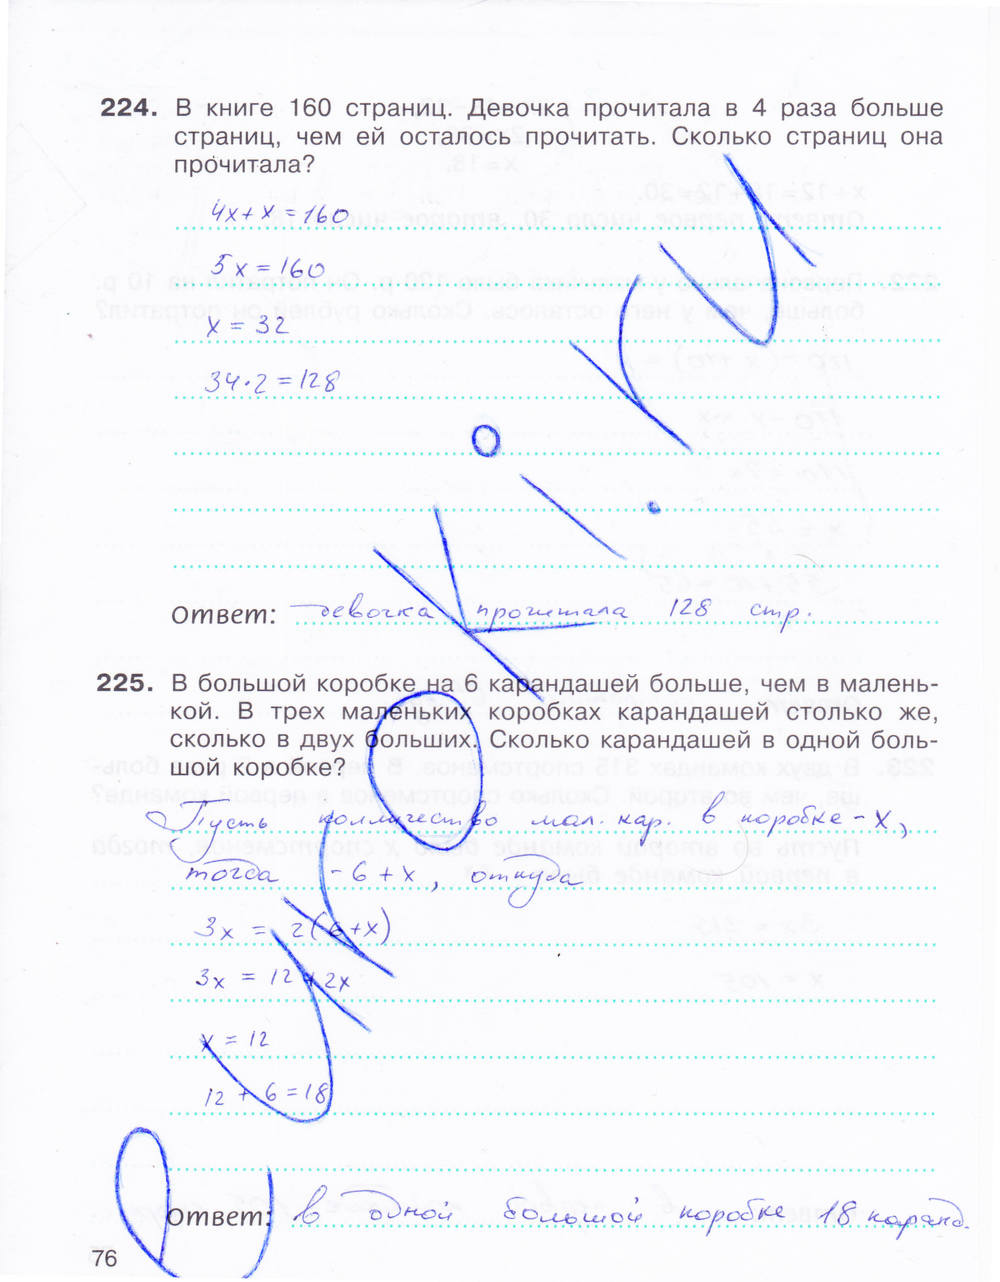 224. В книге 160 страниц. Девочка прочитала в 4 раза больше
страниц, чем ей осталось прочитать. Сколько страниц она
прочитала?
4x+x=160
5x=160
x=32
34·2=128
Ответ: девочка прочитала 128 стр.
225. В большой коробке на 6 карандашей больше, чем в малень-
кой. В трех маленьких коробках карандашей столько же,
сколько в двух больших. Сколько карандашей в одной боль-
шой коробке?
Пусть колличество мал. кар. в коробке - x,
тогда - 6+x, откуда
3x = 2(6+x)
3x = 12+2x
x = 12
12 + 6 = 18
Ответ: в одной большой коробке 18 каранд.
76